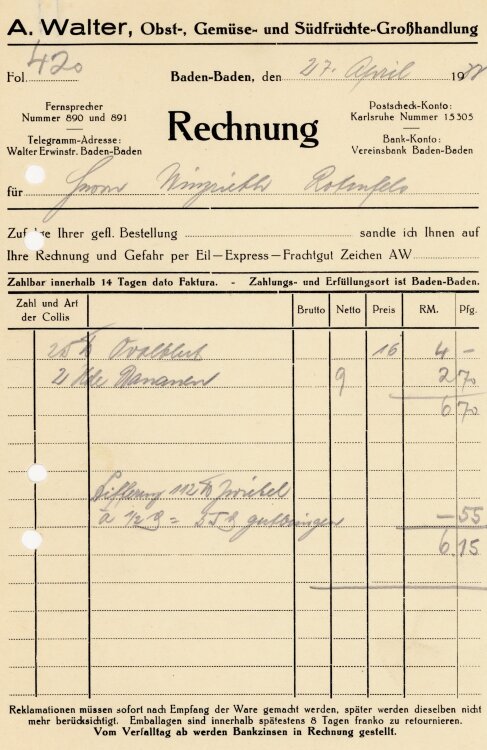 A. Walter, Obst-, Gemüse- und Südfrüchte-Großhandlung
Fol. 420
Baden-Baden, den 27. April 19
Fernsprecher
Nummer 890 und 891
Telegramm-Adresse:
Walter Erwinstr. Baden-Baden
Rechnung
Postscheck-Konto:
Karlsruhe Nummer 15305
Bank-Konto:
Vereinsbank Baden-Baden
für Herrn Rotenfels
Zufolge Ihrer gefl. Bestellung sandte ich Ihnen auf
Ihre Rechnung und Gefahr per Eil–Express–Frachtgut Zeichen AW
Zahlbar innerhalb 14 Tagen dato Faktura. - Zahlungs- und Erfüllungsort ist Baden-Baden.
Zahl und Art
der Collis
Brutto Netto Preis RM. Pfg.
25 ℔ 16 4 –
2 Bananen 9 2 70
6 70
112 ℔ Zwiebel
à 1/2 ₰ = 55 ₰ – 55
6.15
Reklamationen müssen sofort nach Empfang der Ware gemacht werden, später werden dieselben nicht
mehr berücksichtigt. Emballagen sind innerhalb spätestens 8 Tagen franko zu retournieren.
Vom Verfalltag ab werden Bankzinsen in Rechnung gestellt.